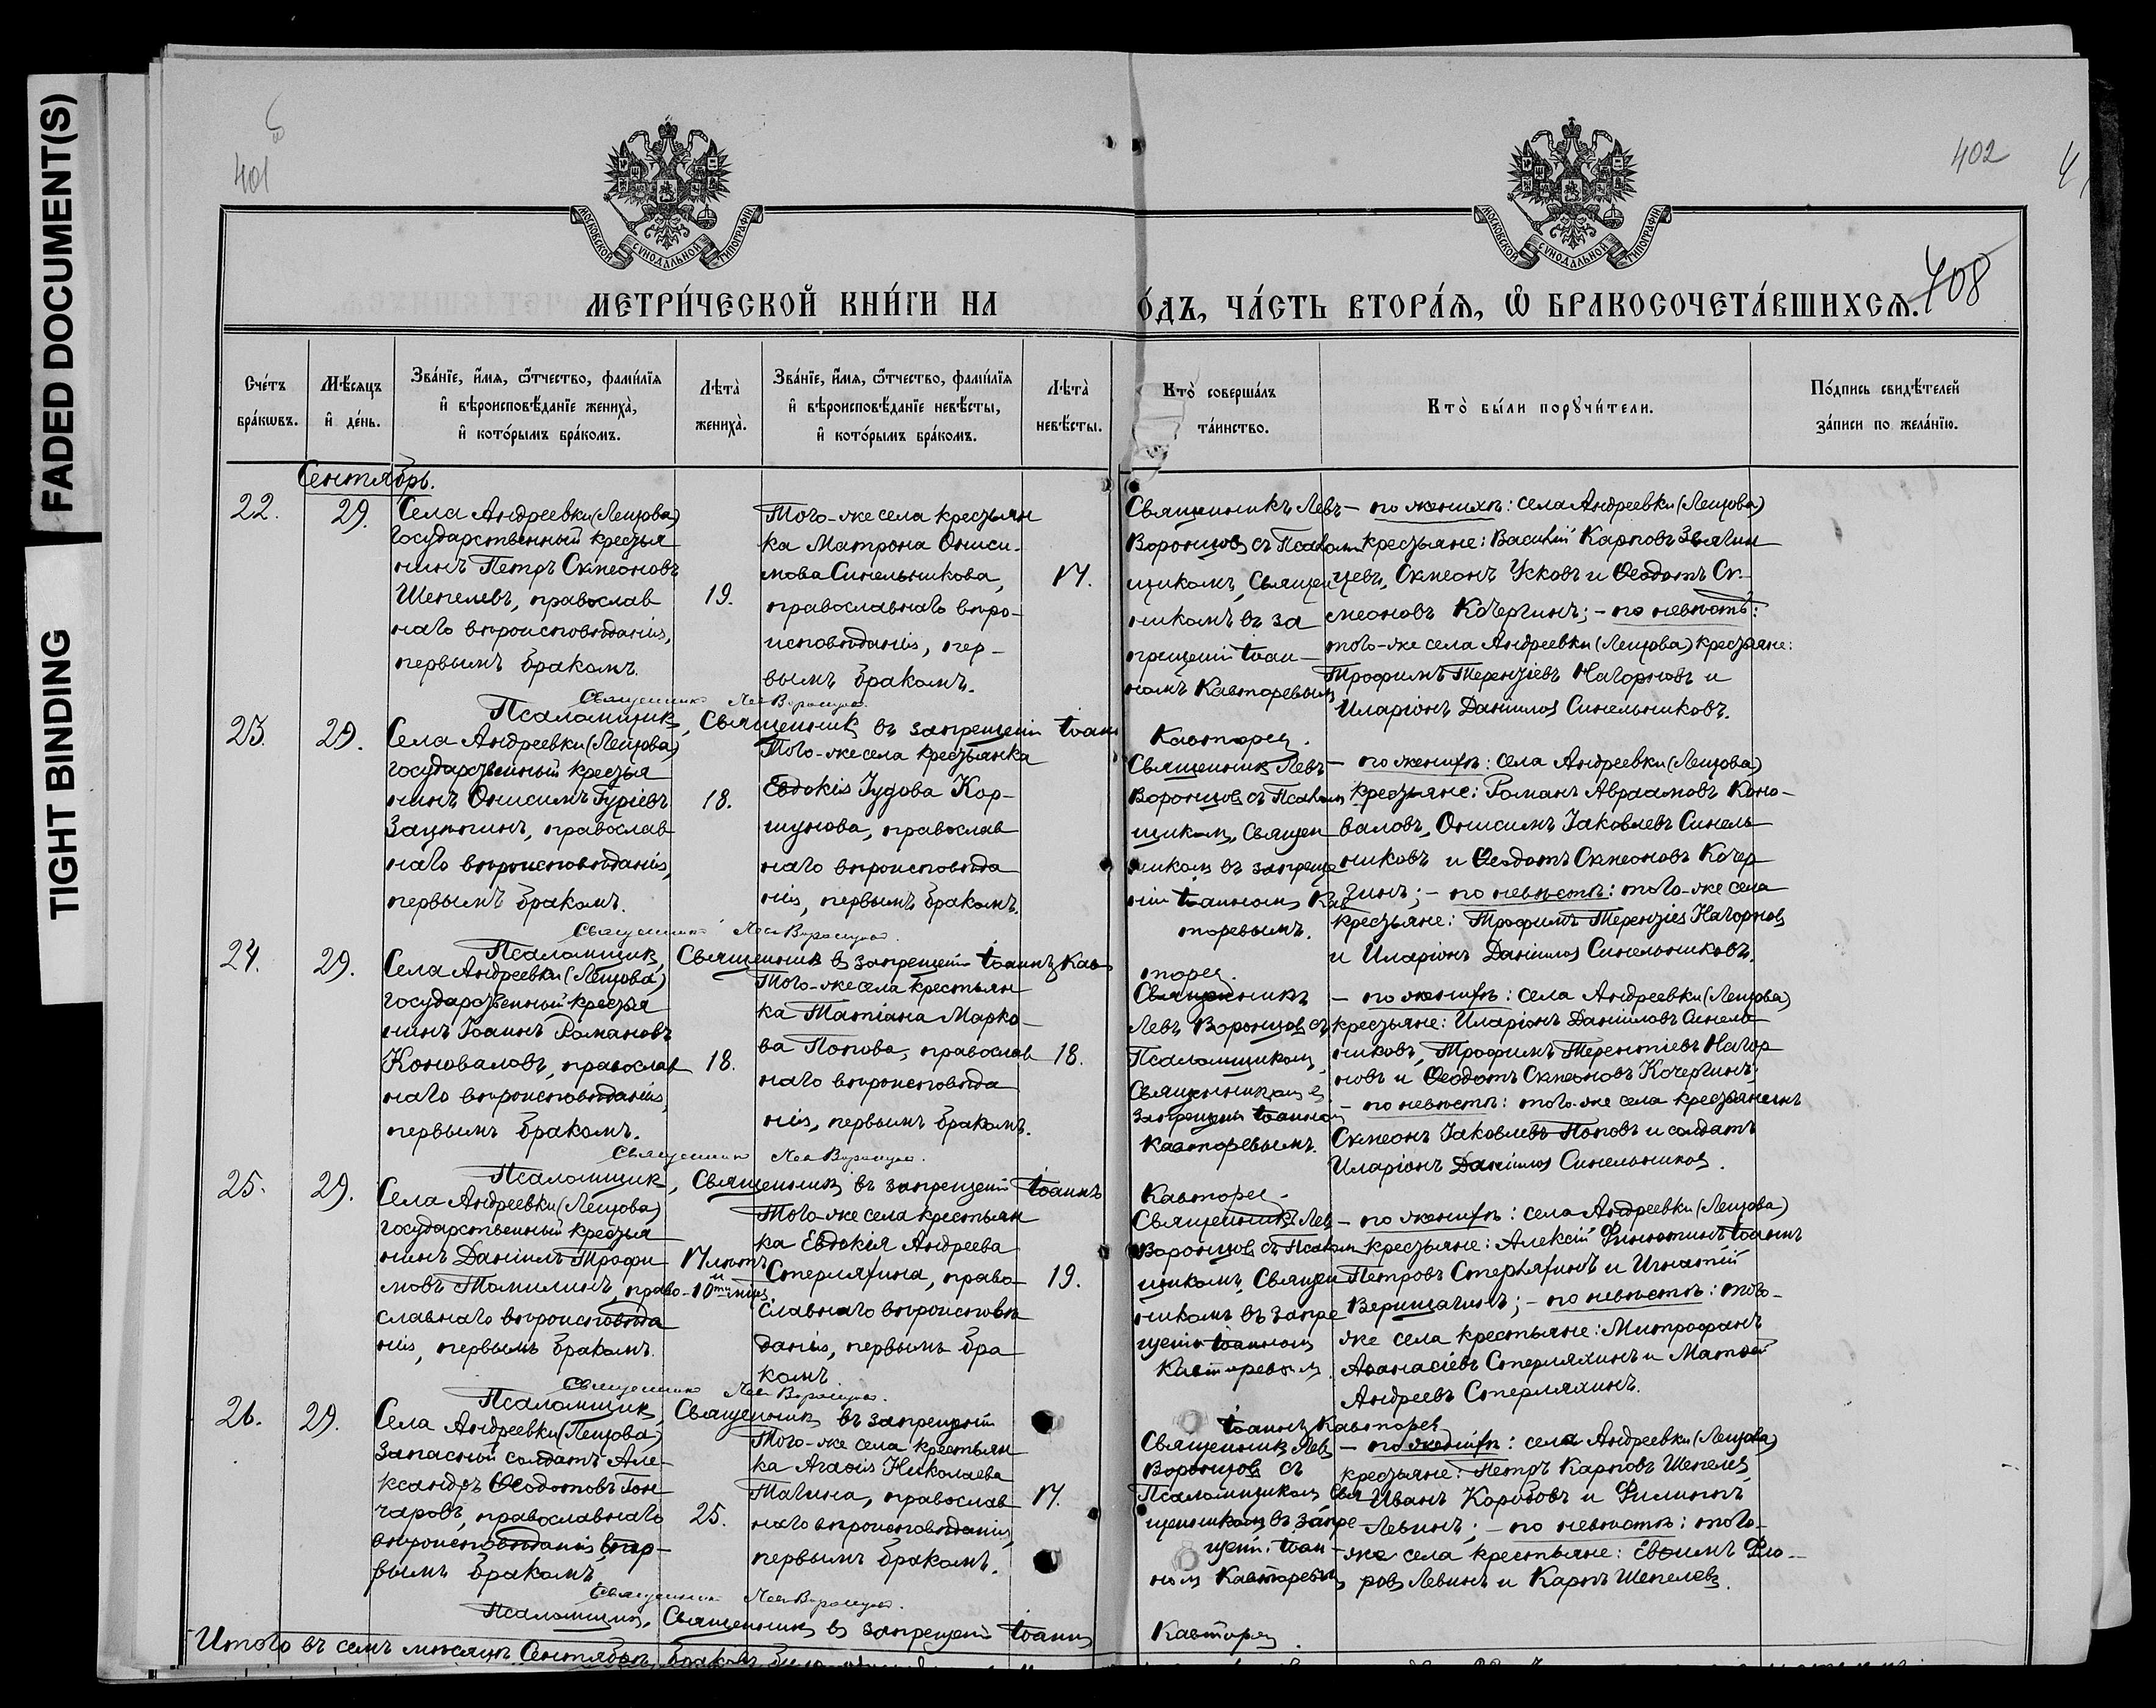 FADED DOCUMENT(S)
TIGHT BINDING
401
402
408
МОСКОВСКОЙ СѴНОДАЛЬНОЙ ТИПОГРАФІИ
МОСКОВСКОЙ СѴНОДАЛЬНОЙ ТИПОГРАФІИ
МЕТРИ́ЧЕСКОЙ КНИ́ГИ НА
О́ДЪ, ЧА́СТЬ ВТОРА́Я, Ѡ҆ БРАКОСОЧЕТА́ВШИХСЯ.
Сче́тъ бра́кωвъ.
Мѣ́сяцъ и҆ де́нь.
Зва́нїе, и҆́мя, ѻ҆́тчество, фами́лїя
и҆ вѣроисповѣ́данїе жениха̀,
и҆ кото́рымъ бра́комъ.
Лѣта̀ жениха̀.
Зва́нїе, и҆́мя, ѻ҆́тчество, фами́лїя
и҆ вѣроисповѣ́данїе невѣ́сты,
и҆ кото́рымъ бра́комъ.
Лѣта̀ невѣ́сты.
Кто̀ соверша́лъ та́инство.
Кто̀ бы́ли порꙋчи́тели.
По́дпись свидѣ́телей за́писи по жела́нїю.
Сентябрь.
22.
29.
Села Андреевки (Лещова)
Государственный крестья
нинъ Петръ Сѵмеоновъ
Шепелевъ, православ
наго вѣроисповѣданія,
первымъ бракомъ.
19.
Того-же села крестьян
ка Матрона Ониси-
мова Синельникова,
православнаго вѣро-
исповѣданія, пер-
вымъ бракомъ.
17.
Священникъ Левъ
Воронцовъ съ Псалом
щикомъ, Священ
никомъ въ за
прещеніи Іоан-
номъ Кавторевымъ
— по женихѣ: села Андреевки (Лещова)
крестьяне: Василій Карповъ Звягин
цевъ, Сѵмеонъ Усковъ и Ѳеодотъ Сѵ-
меоновъ Кочергинъ; — по невѣстѣ:
того-же села Андреевки (Лещова) крестьяне:
Трофимъ Терентіевъ Нагорновъ и
Иларіонъ Даніиловъ Синельниковъ.
Священникъ Левъ Воронцовъ.
Псаломщикъ, Священникъ въ запрещеніи Іоаннъ Кавторев.
23.
29.
Села Андреевки (Лещова)
Государственный крестья
нинъ Онисимъ Гуріевъ
Зацѣпинъ, православ
наго вѣроисповѣданія,
первымъ бракомъ.
18.
Того-же села крестьянка
Евдокія Іудова Кор-
шунова, православ
наго вѣроисповѣда
нія, первымъ бракомъ.
Священникъ Левъ
Воронцовъ съ Псалом
щикомъ, Священ
никомъ въ запреще
ніи Іоанномъ Кав
торевымъ.
— по женихѣ: села Андреевки (Лещова)
крестьяне: Романъ Авраамовъ Коно-
валовъ, Онисимъ Іаковлевъ Синель
никовъ и Ѳеодотъ Сѵмеоновъ Кочер
гинъ; — по невѣстѣ: того-же села
крестьяне: Трофимъ Терентіевъ Нагорновъ
и Иларіонъ Даніиловъ Синельниковъ.
Священникъ Левъ Воронцовъ.
Псаломщикъ, Священникъ въ запрещеніи Іоаннъ Кавторев.
24.
29.
Села Андреевки (Лещова)
Государственный крестья
нинъ Іоаннъ Романовъ
Коноваловъ, православ
наго вѣроисповѣданія,
первымъ бракомъ.
18.
Того-же села крестьян
ка Татіана Марко-
ва Попова, православ
наго вѣроисповѣда
нія, первымъ бракомъ.
18.
Священникъ
Левъ Воронцовъ съ
Псаломщикомъ,
Священникомъ въ
запрещеніи Іоанномъ
Кавторевымъ.
— по женихѣ: села Андреевки (Лещова)
крестьяне: Иларіонъ Даніиловъ Синель
никовъ, Трофимъ Терентіевъ Нагор
новъ и Ѳеодотъ Сѵмеоновъ Кочергинъ;
— по невѣстѣ: того-же села крестьянинъ
Сѵмеонъ Іаковлевъ Поповъ и солдатъ
Иларіонъ Даніиловъ Синельниковъ.
Священникъ Левъ Воронцовъ.
Псаломщикъ, Священникъ въ запрещеніи Іоаннъ Кавторев.
25.
29.
Села Андреевки (Лещова)
Государственный крестья
нинъ Даніилъ Трофи-
мовъ Томилинъ, право-
славнаго вѣроисповѣда
нія, первымъ бракомъ.
17 лѣтъ
и
10ти мѣс.
Того-же села крестьян
ка Евдокія Андреева
Стерляхина, право-
славнаго вѣроисповѣ
данія, первымъ бра
комъ
19.
Священникъ Левъ
Воронцовъ съ Псалом
щикомъ, Священ
никомъ въ запре
щеніи Іоанномъ
Кавторевым.
— по женихѣ: села Андреевки (Лещова)
крестьяне: Алексій Финютинъ, Іоаннъ
Петровъ Стерляхинъ и Игнатій
Верищагинъ; — по невѣстѣ: того-
же села крестьяне: Митрофанъ
Аѳанасіевъ Стерляхинъ и Матѳей
Андреевъ Стерляхинъ.
Священникъ Левъ Воронцовъ.
Псаломщикъ, Священникъ въ запрещеніи
Іоаннъ Кавторев
26.
29.
Села Андреевки (Лещова)
запасный солдатъ Але-
ксандръ Ѳеодотовъ Гон
чаровъ, православнаго
вѣроисповѣданія,
вымъ бракомъ
25.
Того-же села крестьян
ка Агаѳія Николаева
Тагина, православ
наго вѣроисповѣданія,
первымъ бракомъ.
17.
Священникъ Левъ
Воронцовъ съ
Псаломщикомъ, Свя
щенникомъ въ запре
щеніи Іоан-
номъ Кавторевымъ
— по женихѣ: села Андреевки (Лещова)
крестьяне: Петръ Карповъ Шепелевъ,
Иванъ Коробовъ и Филиппъ
Левинъ; — по невѣстѣ: того-
же села крестьяне: Евѳимъ Фло-
ровъ Левинъ и Карпъ Шепелевъ.
Священникъ Левъ Воронцовъ.
Псаломщикъ, Священникъ въ запрещеніи Іоаннъ Кавторев.
Итого въ семъ мѣсяцѣ Сентябрѣ браковъ было